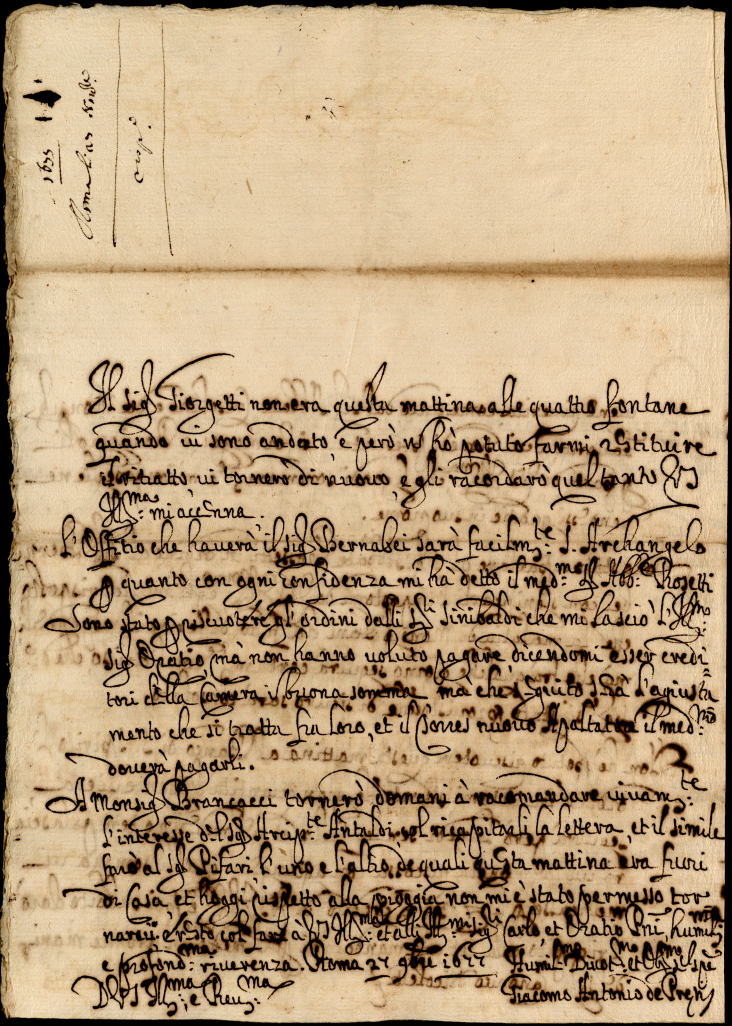 1655
Roma
Il Sig.r Giorgetti non era questa mattina alle quattro fontane
quando vi sono andato e però n hò potuto farmi restituire
il ritratto vi tornerò di nuovo è gli racordarò quel tanto VS
Ill.ma mi accenna.
L'Offitio che haverà il Sig.r Bernabei sarà facilm.te S. Archangelo
p quanto con ogni confidenza mi ha detto il med.mo Sig.r Abb.e Rosetti
Sono stato p riscuotere gl'ordini dalli SS.ri Sinibaldi che mi lasciò l'Ill.mo
Sig.r Oratio mà non hanno voluto pagare dicendomi esser credi
tori della Camera di buona somma mà che seguito sarà l'agiusta
mento che si tratta fra loro, et il nuovo Apaltatore il med.mo
doverà pagarli.
A Monsig.r Brancacci tornerò domani à racomandare vivam.te
l'interesse del Sig.r Arcip.te Antaldi col ricapitarli la lettera, et il simile
farò al Sig.r Pifari l'uno e l'altro de quali questa mattina era fuori
di Casa et hoggi rispetto alla pioggia non mi è stato permesso tor
narvi è resto col fare a VS Ill.ma et alli Ill.mi SS.ri Carlo et Oratio humiliss.ma
e profond.ma riverenza. Roma 27 9bre 1655
D VS Ill.ma, e Rev.ma
Humil.mo Divot.mo et Obl.mo
Giacomo Antonio de